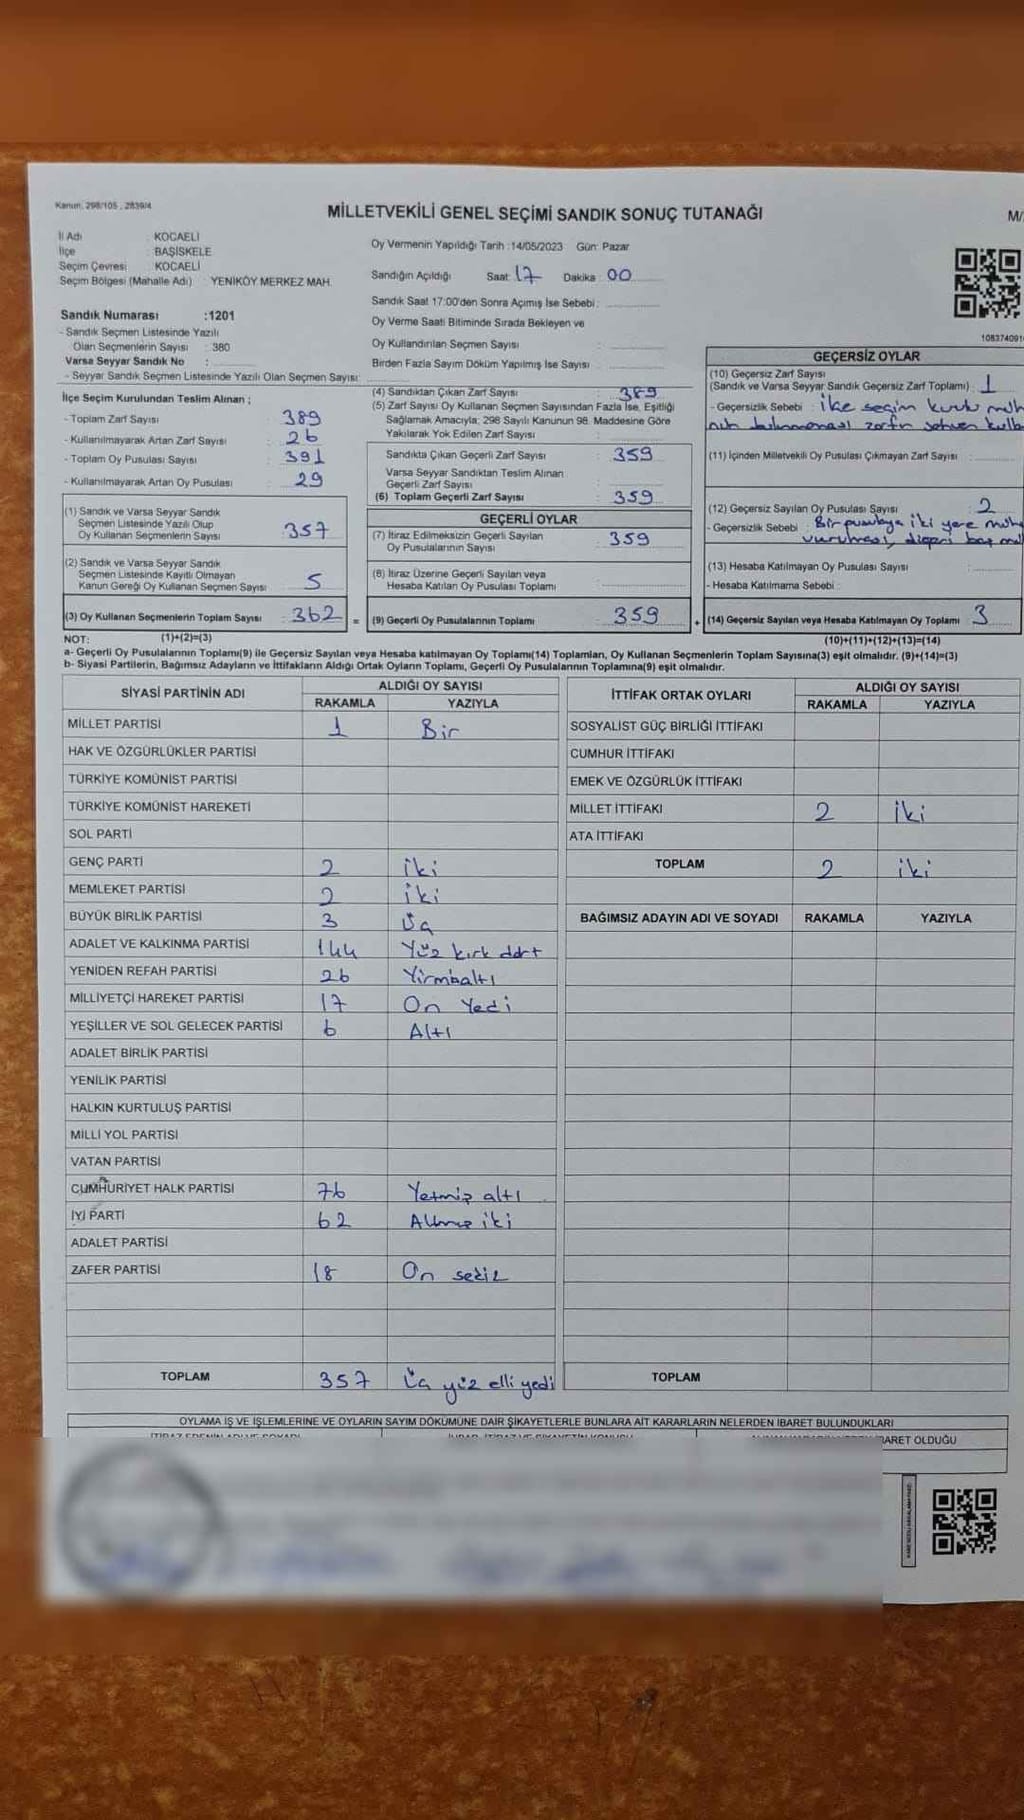 Kanun: 298/105, 2839/4
MİLLETVEKİLİ GENEL SEÇİMİ SANDIK SONUÇ TUTANAĞI
M/
İl Adı : KOCAELİ
İlçe : BAŞİSKELE
Seçim Çevresi : KOCAELİ
Seçim Bölgesi (Mahalle Adı) : YENİKÖY MERKEZ MAH.
Oy Vermenin Yapıldığı Tarih :14/05/2023 Gün: Pazar
Sandığın Açıldığı Saat: 17 Dakika: 00
Sandık Saat 17:00'den Sonra Açımış İse Sebebi:
Oy Verme Saati Bitiminde Sırada Bekleyen ve
Oy Kullandırılan Seçmen Sayısı :
Birden Fazla Sayım Döküm Yapılmış İse Sayısı :
Sandık Numarası :1201
- Sandık Seçmen Listesinde Yazılı
Olan Seçmenlerin Sayısı : 380
Varsa Seyyar Sandık No :
- Seyyar Sandık Seçmen Listesinde Yazılı Olan Seçmen Sayısı:
İlçe Seçim Kurulundan Teslim Alınan ;
- Toplam Zarf Sayısı : 389
- Kullanılmayarak Artan Zarf Sayısı : 26
- Toplam Oy Pusulası Sayısı : 391
- Kullanılmayarak Artan Oy Pusulası : 29
(1) Sandık ve Varsa Seyyar Sandık
Seçmen Listesinde Yazılı Olup
Oy Kullanan Seçmenlerin Sayısı : 357
(2) Sandık ve Varsa Seyyar Sandık
Seçmen Listesinde Kayıtlı Olmayan
Kanun Gereği Oy Kullanan Seçmen Sayısı : 5
(3) Oy Kullanan Seçmenlerin Toplam Sayısı : 362 =
(4) Sandıktan Çıkan Zarf Sayısı : 389
(5) Zarf Sayısı Oy Kullanan Seçmen Sayısından Fazla İse, Eşitliği
Sağlamak Amacıyla; 298 Sayılı Kanunun 98. Maddesine Göre
Yakılarak Yok Edilen Zarf Sayısı :
Sandıkta Çıkan Geçerli Zarf Sayısı : 359
Varsa Seyyar Sandıktan Teslim Alınan
Geçerli Zarf Sayısı :
(6) Toplam Geçerli Zarf Sayısı : 359
GEÇERLİ OYLAR
(7) İtiraz Edilmeksizin Geçerli Sayılan
Oy Pusulalarının Sayısı : 359
(8) İtiraz Üzerine Geçerli Sayılan veya
Hesaba Katılan Oy Pusulası Toplamı :
(9) Geçerli Oy Pusulalarının Toplamı : 359 +
108374091
GEÇERSİZ OYLAR
(10) Geçersiz Zarf Sayısı
(Sandık ve Varsa Seyyar Sandık Geçersiz Zarf Toplamı) : 1
- Geçersizlik Sebebi : ilçe seçim kurulu müh
nün bulunmaması zarfın sehven kulla
(11) İçinden Milletvekili Oy Pusulası Çıkmayan Zarf Sayısı :
(12) Geçersiz Sayılan Oy Pusulası Sayısı : 2
- Geçersizlik Sebebi : Bir pusulaya iki yere mühü
vurulması, diğeri boş
(13) Hesaba Katılmayan Oy Pusulası Sayısı :
- Hesaba Katılmama Sebebi :
(14) Geçersiz Sayılan veya Hesaba Katılmayan Oy Toplamı : 3
NOT: (1)+(2)=(3)
(10)+(11)+(12)+(13)=(14)
a- Geçerli Oy Pusulalarının Toplamı(9) ile Geçersiz Sayılan veya Hesaba katılmayan Oy Toplamı(14) Toplamları, Oy Kullanan Seçmenlerin Toplam Sayısına(3) eşit olmalıdır. (9)+(14)=(3)
b- Siyasi Partilerin, Bağımsız Adayların ve İttifakların Aldığı Ortak Oyların Toplamı, Geçerli Oy Pusulalarının Toplamına(9) eşit olmalıdır.
SİYASİ PARTİNİN ADI ALDIĞI OY SAYISI
RAKAMLA YAZIYLA
MİLLET PARTİSİ 1 Bir
HAK VE ÖZGÜRLÜKLER PARTİSİ
TÜRKİYE KOMÜNİST PARTİSİ
TÜRKİYE KOMÜNİST HAREKETİ
SOL PARTİ
GENÇ PARTİ 2 iki
MEMLEKET PARTİSİ 2 iki
BÜYÜK BİRLİK PARTİSİ 3 Üç
ADALET VE KALKINMA PARTİSİ 144 Yüz kırk dört
YENİDEN REFAH PARTİSİ 26 Yirmialtı
MİLLİYETÇİ HAREKET PARTİSİ 17 On Yedi
YEŞİLLER VE SOL GELECEK PARTİSİ 6 Altı
ADALET BİRLİK PARTİSİ
YENİLİK PARTİSİ
HALKIN KURTULUŞ PARTİSİ
MİLLİ YOL PARTİSİ
VATAN PARTİSİ
CUMHURİYET HALK PARTİSİ 76 Yetmiş altı
İYİ PARTİ 62 Altmış iki
ADALET PARTİSİ
ZAFER PARTİSİ 18 On sekiz
TOPLAM 357 Üç yüz elli yedi
İTTİFAK ORTAK OYLARI ALDIĞI OY SAYISI
RAKAMLA YAZIYLA
SOSYALİST GÜÇ BİRLİĞİ İTTİFAKI
CUMHUR İTTİFAKI
EMEK VE ÖZGÜRLÜK İTTİFAKI
MİLLET İTTİFAKI 2 iki
ATA İTTİFAKI
TOPLAM 2 iki
BAĞIMSIZ ADAYIN ADI VE SOYADI RAKAMLA YAZIYLA
TOPLAM
OYLAMA İŞ VE İŞLEMLERİNE VE OYLARIN SAYIM DÖKÜMÜNE DAİR ŞİKAYETLERLE BUNLARA AİT KARARLARIN NELERDEN İBARET BULUNDUKLARI
BARET OLDUĞU